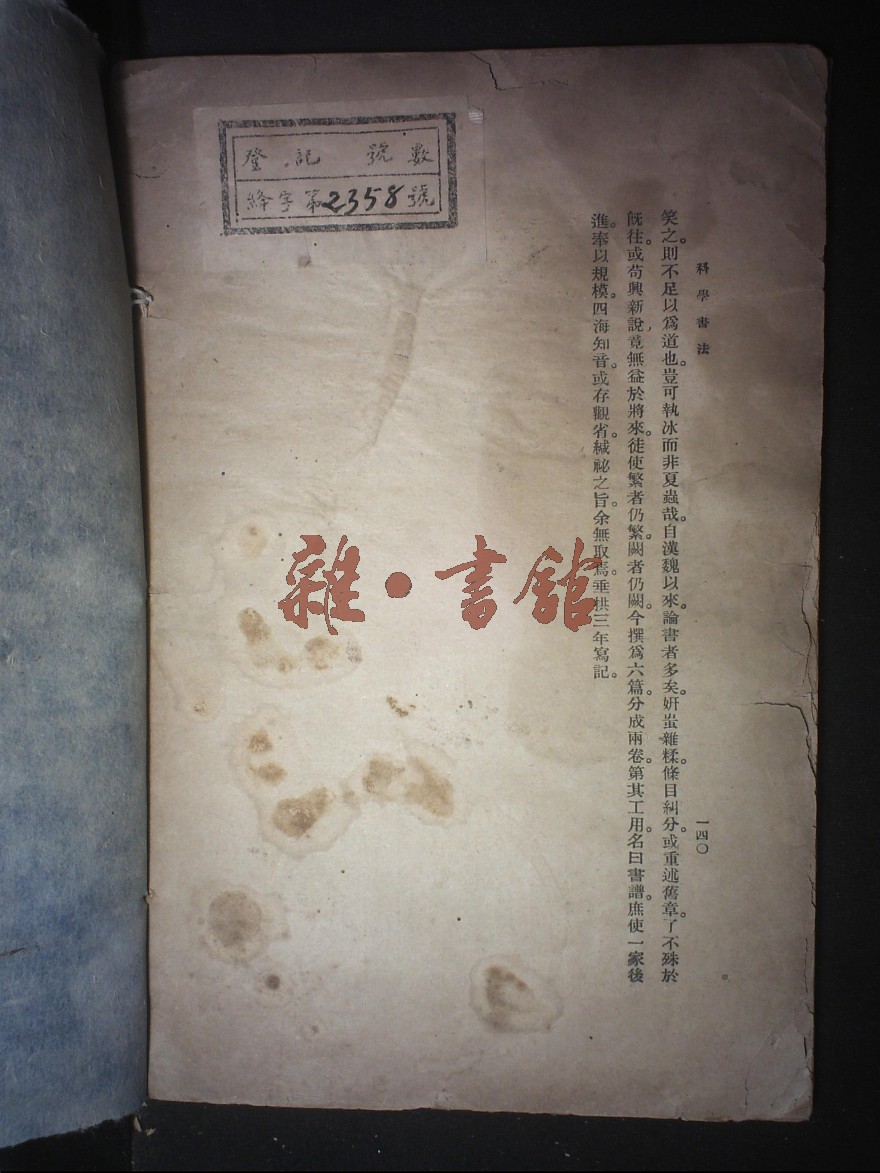 科學書法
一四〇
笑之。則不足以爲道也。豈可執冰而非夏蟲哉。自漢魏以來。論書者多矣。姸蚩雜糅。條目糾分。或重述舊章。了不殊於
旣往。或苟興新說。竟無益於將來。徒使繁者仍繁。闕者仍闕。今撰爲六篇。分成兩卷。第其工用。名曰書譜。庶使一家後
進。奉以規模。四海知音。或存觀省。緘祕之旨。余無取焉。垂拱三年寫記。
登記號數
絳字第2358號
雜·書館